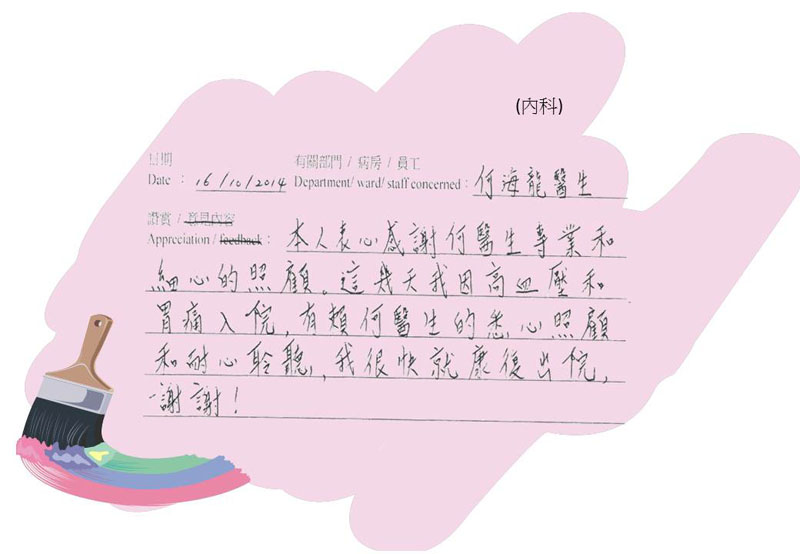 (內科)
日期 有關部門 / 病房 / 員工
Date : 16/10/2014 Department/ ward/ staff concerned : 何海龍醫生
讚賞 / 意見內容
Appreciation / feedback : 本人衷心感謝何醫生專業和
細心的照顧。這幾天我因高血壓和
胃痛入院,有賴何醫生的悉心照顧
和耐心聆聽,我很快就康復出院,
謝謝!